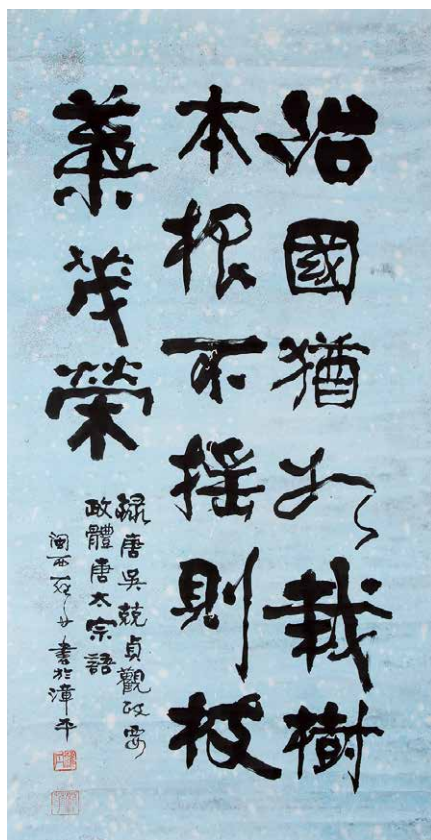 治國猶如栽樹
本根不搖則枝
葉茂榮
錄唐吳兢貞觀政要
政體唐太宗語
閩西書於漳平